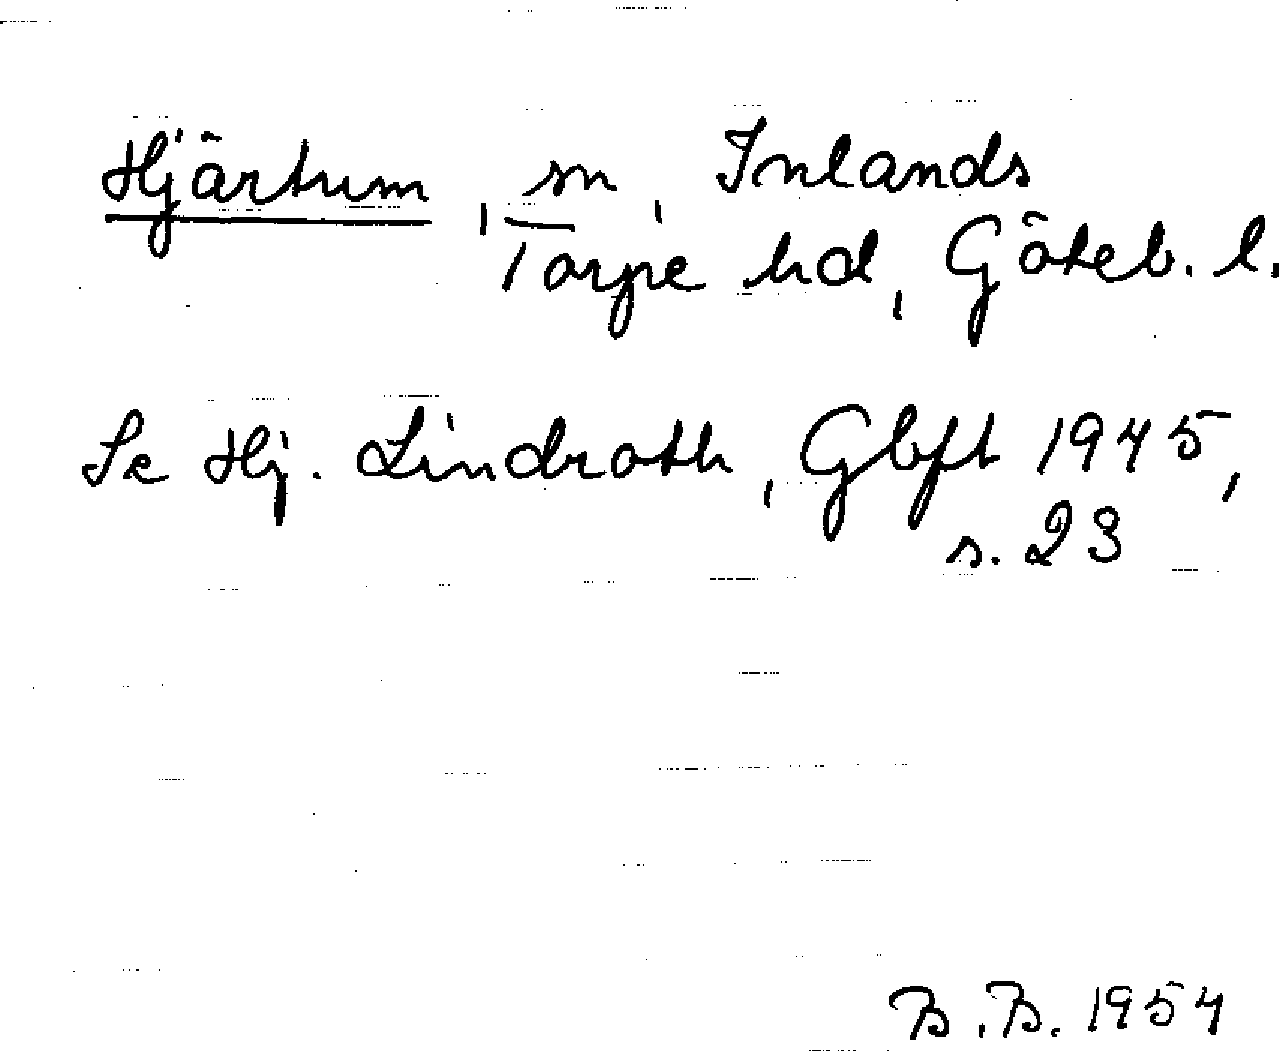 Hjärtum, sn, Inlands
Torpe hd, Göteb. l.
Se Hj. Lindroth, Gbft 1945,
s. 23
B.B. 1954